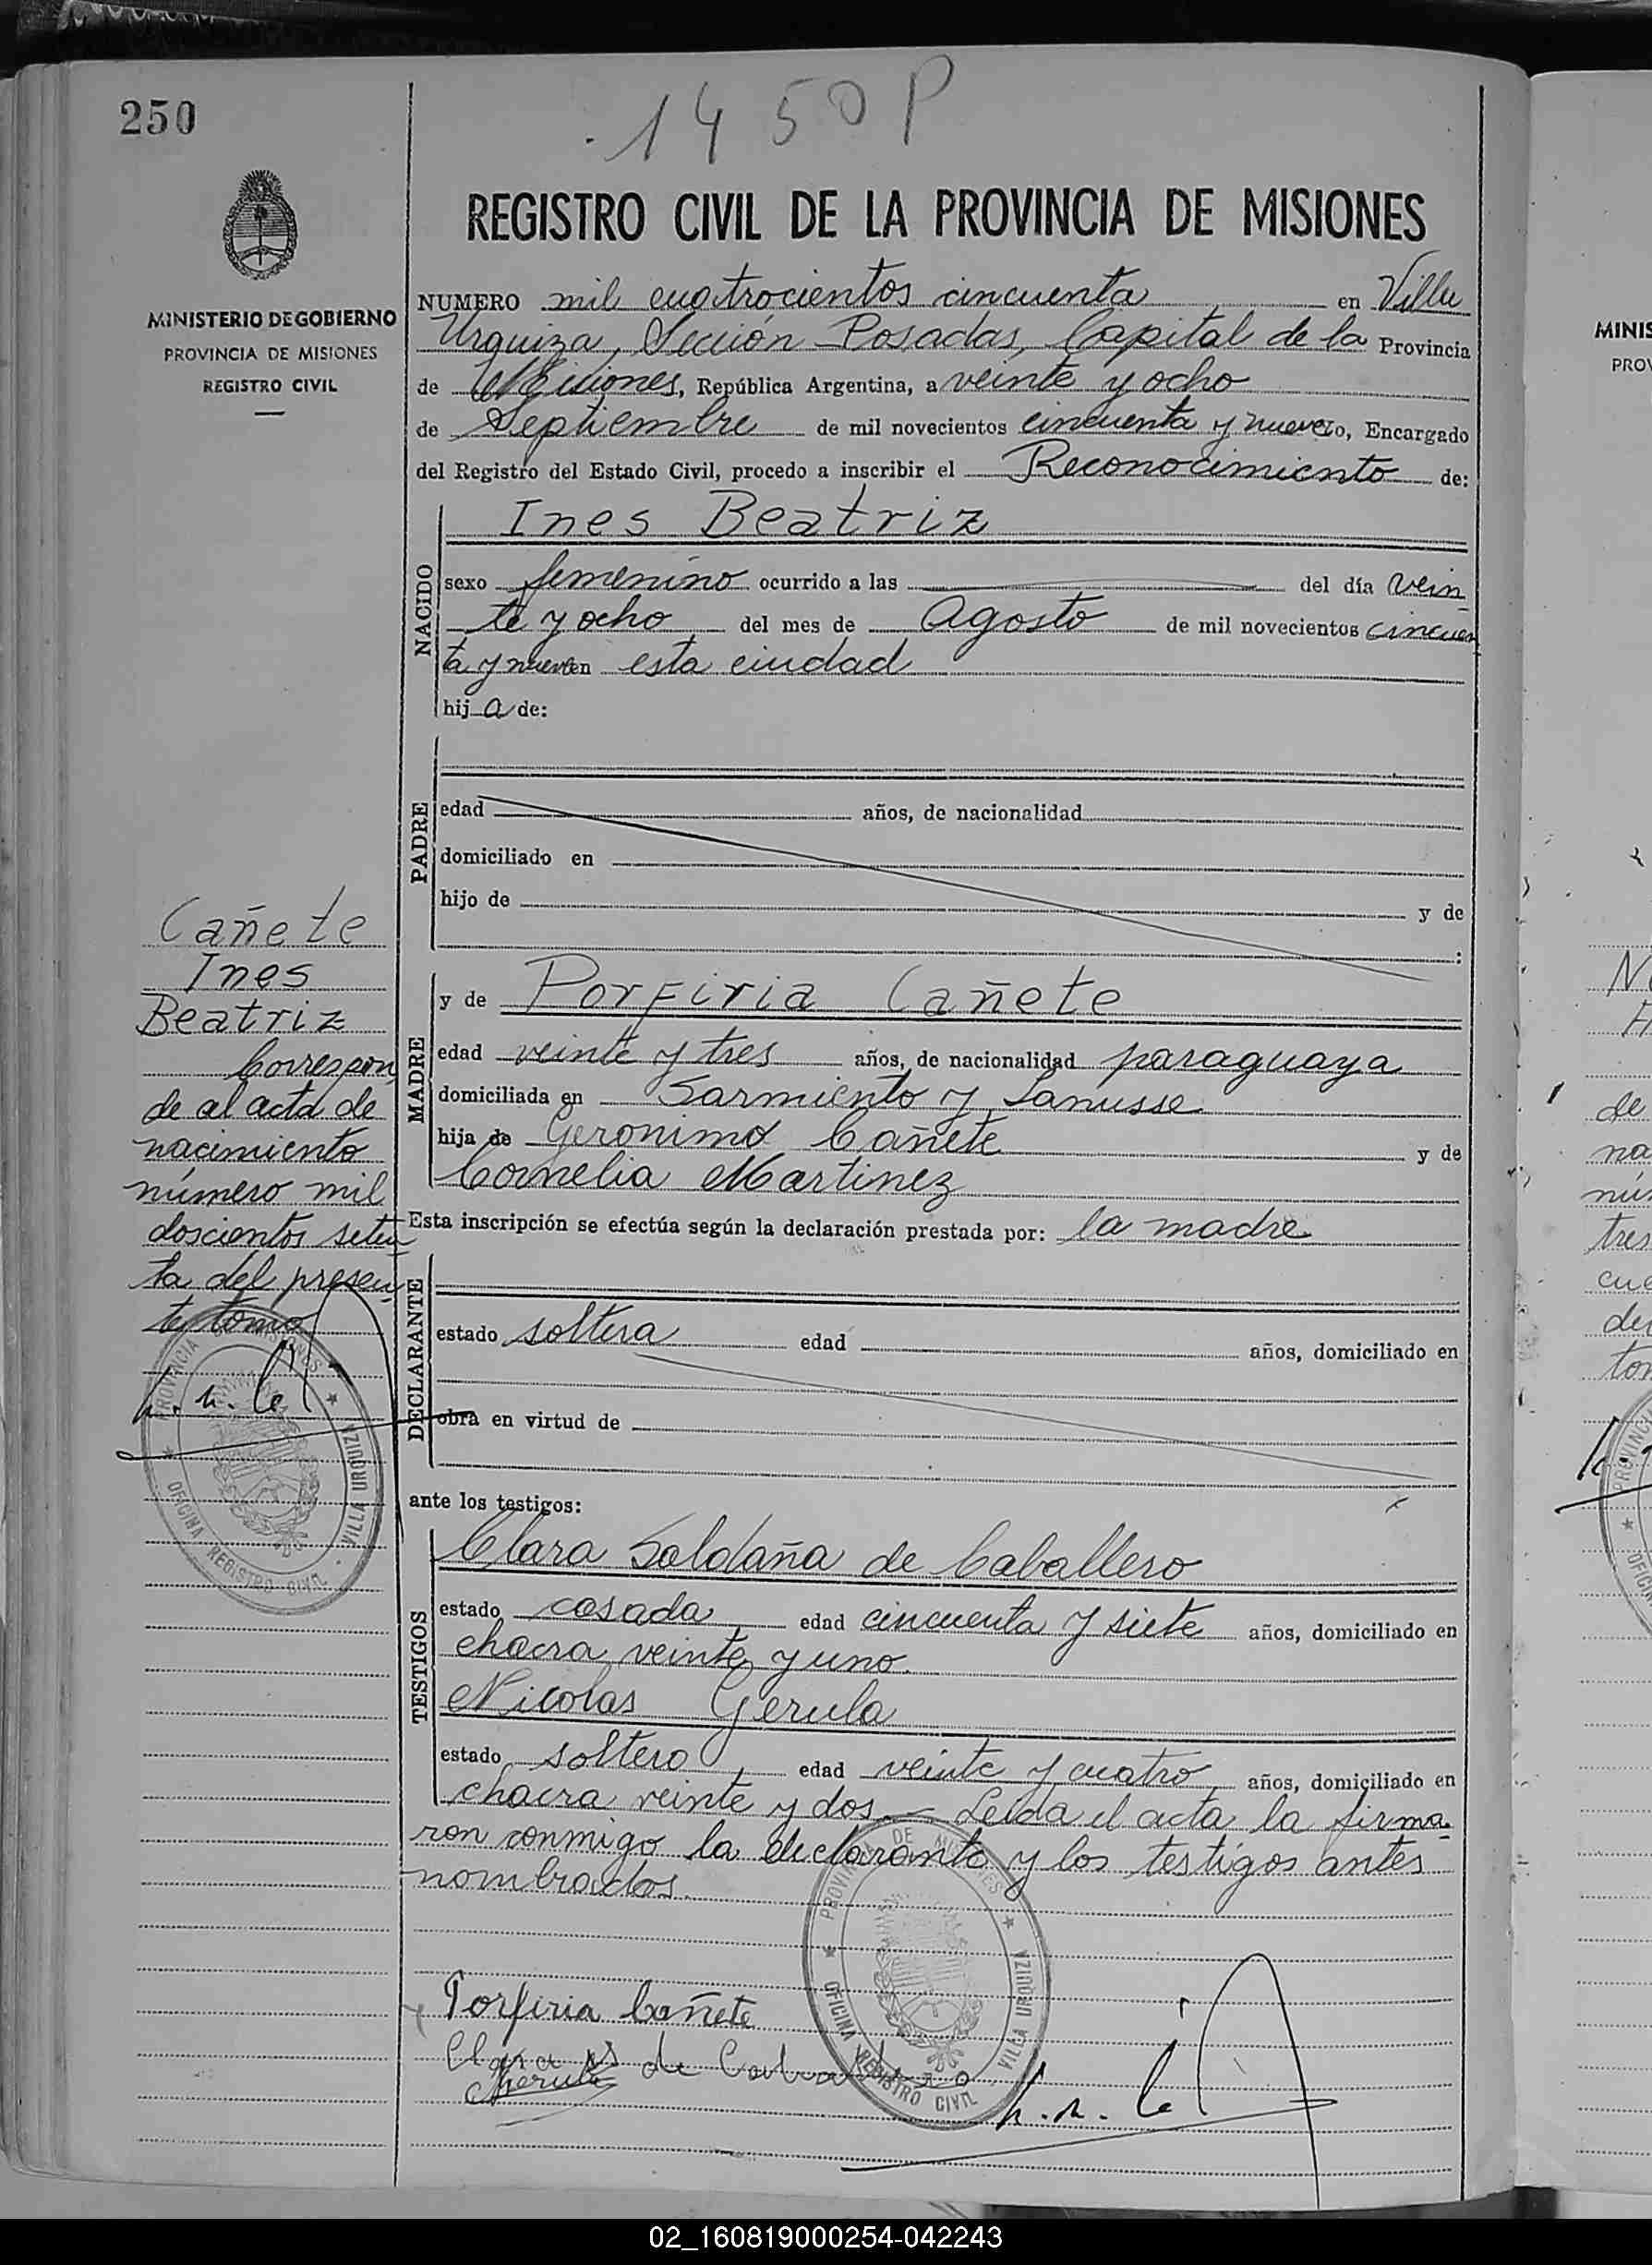 250
1450P
REGISTRO CIVIL DE LA PROVINCIA DE MISIONES
MINISTERIO DE GOBIERNO
PROVINCIA DE MISIONES
REGISTRO CIVIL
NUMERO mil cuatrocientos cincuenta en Villa
Urquiza, Sección Posadas, Capital de la Provincia
de Misiones, República Argentina, a veinte y ocho
de Septiembre de mil novecientos cincuenta y nueve, Encargado
del Registro del Estado Civil, procedo a inscribir el Reconocimiento de:
NACIDO
Ines Beatriz
sexo femenino ocurrido a las del día vein
te y ocho del mes de Agosto de mil novecientos cincuen
ta y nueve en esta ciudad
hija de:
PADRE
edad años, de nacionalidad
domiciliado en
hijo de y de
:
Cañete
Ines
Beatriz
Correspon
de al acta de
nacimiento
número mil
doscientos seten
ta del presen
te tomo
MADRE
y de Porfiria Cañete
edad veinte y tres años, de nacionalidad paraguaya
domiciliada en Sarmiento y Lanusse
hija de Geronimo Cañete y de
Cornelia Martinez
Esta inscripción se efectúa según la declaración prestada por: la madre
DECLARANTE
estado soltera edad años, domiciliado en
obra en virtud de
ante los testigos:
TESTIGOS
Clara Saldaña de Caballero
estado casada edad cincuenta y siete años, domiciliado en
chacra veinte y uno.
Nicolas Gerula
estado soltero, edad veinte y cuatro, años, domiciliado en
chacra veinte y dos.- Leida el acta la firma-
ron conmigo la declarante y los testigos antes
nombrados.
Porfiria Cañete
Clara S de Caballero
Gerula
PROVINCIA DE MISIONES
OFICINA REGISTRO CIVIL
VILLA URQUIZA
MINIS
PROV
de
na
nú
tres
cue
del
tom
02_160819000254-042243